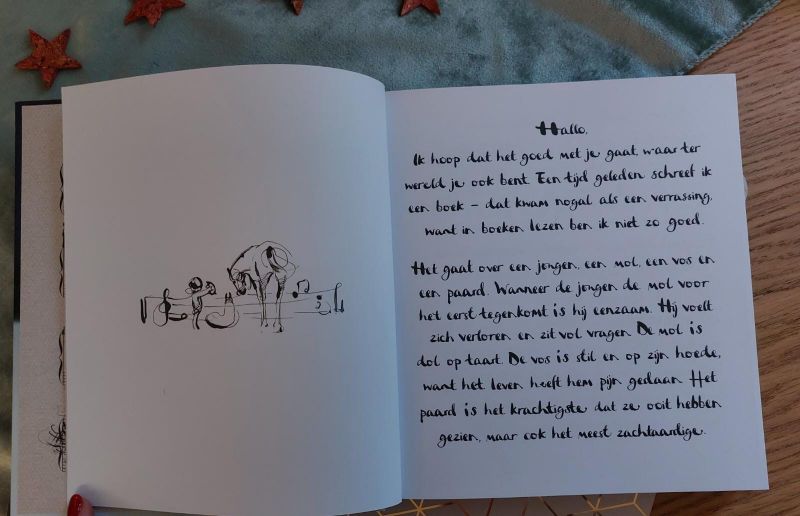 Hallo,
Ik hoop dat het goed met je gaat, waar ter
wereld je ook bent. Een tijd geleden schreef ik
een boek – dat kwam nogal als een verrassing,
want in boeken lezen ben ik niet zo goed.
Het gaat over een jongen, een mol, een vos en
een paard. Wanneer de jongen de mol voor
het eerst tegenkomt is hij eenzaam. Hij voelt
zich verloren en zit vol vragen. De mol is
dol op taart. De vos is stil en op zijn hoede,
want het leven heeft hem pijn gedaan. Het
paard is het krachtigste dat ze ooit hebben
gezien, maar ook het meest zachtaardige.